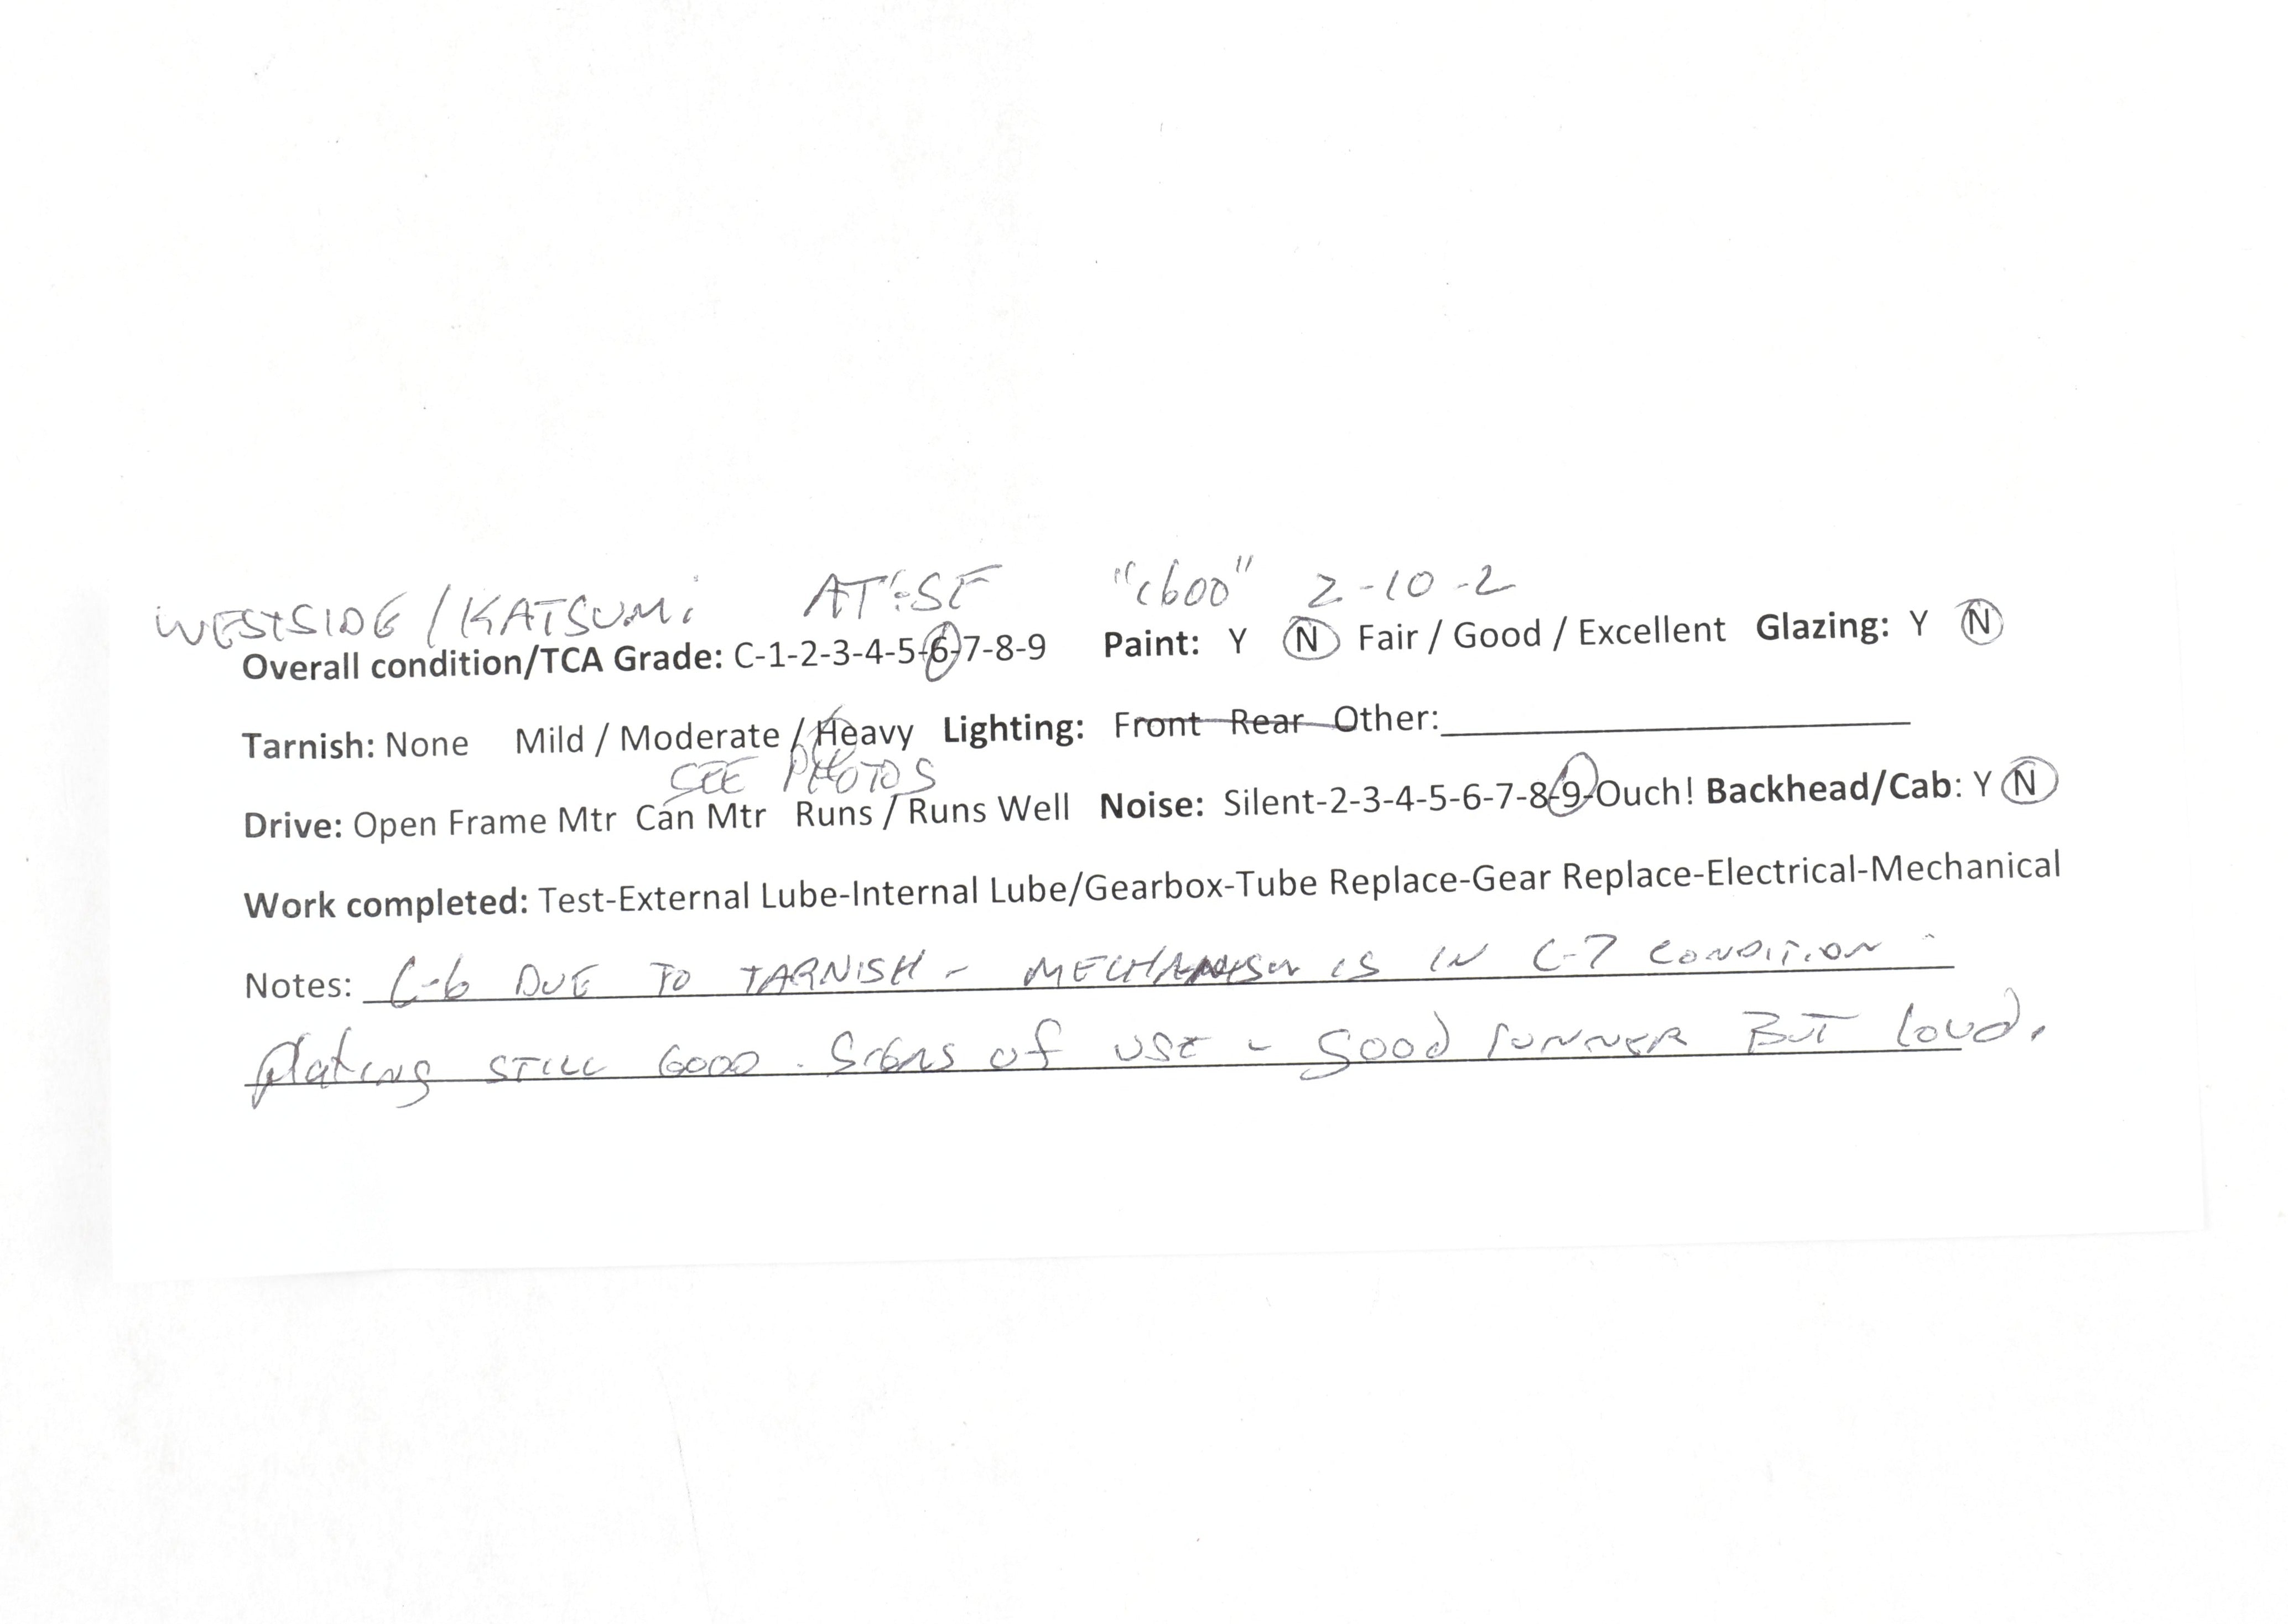 WESTSIDE / KATSUMi AT:SF "c600" 2-10-2
Overall condition/TCA Grade: C-1-2-3-4-5-6-7-8-9 Paint: Y N Fair / Good / Excellent Glazing: Y N
Tarnish: None Mild / Moderate / Heavy Lighting: Front Rear Other:
SEE PHOTOS
Drive: Open Frame Mtr Can Mtr Runs / Runs Well Noise: Silent-2-3-4-5-6-7-8-9-Ouch! Backhead/Cab: Y N
Work completed: Test-External Lube-Internal Lube/Gearbox-Tube Replace-Gear Replace-Electrical-Mechanical
Notes: C-6 DUE TO TARNISH - MECHANISM IS IN C-7 CONDITION -
plating STILL GOOD. SIGNS OF USE - GOOD RUNNER BUT LOUD.